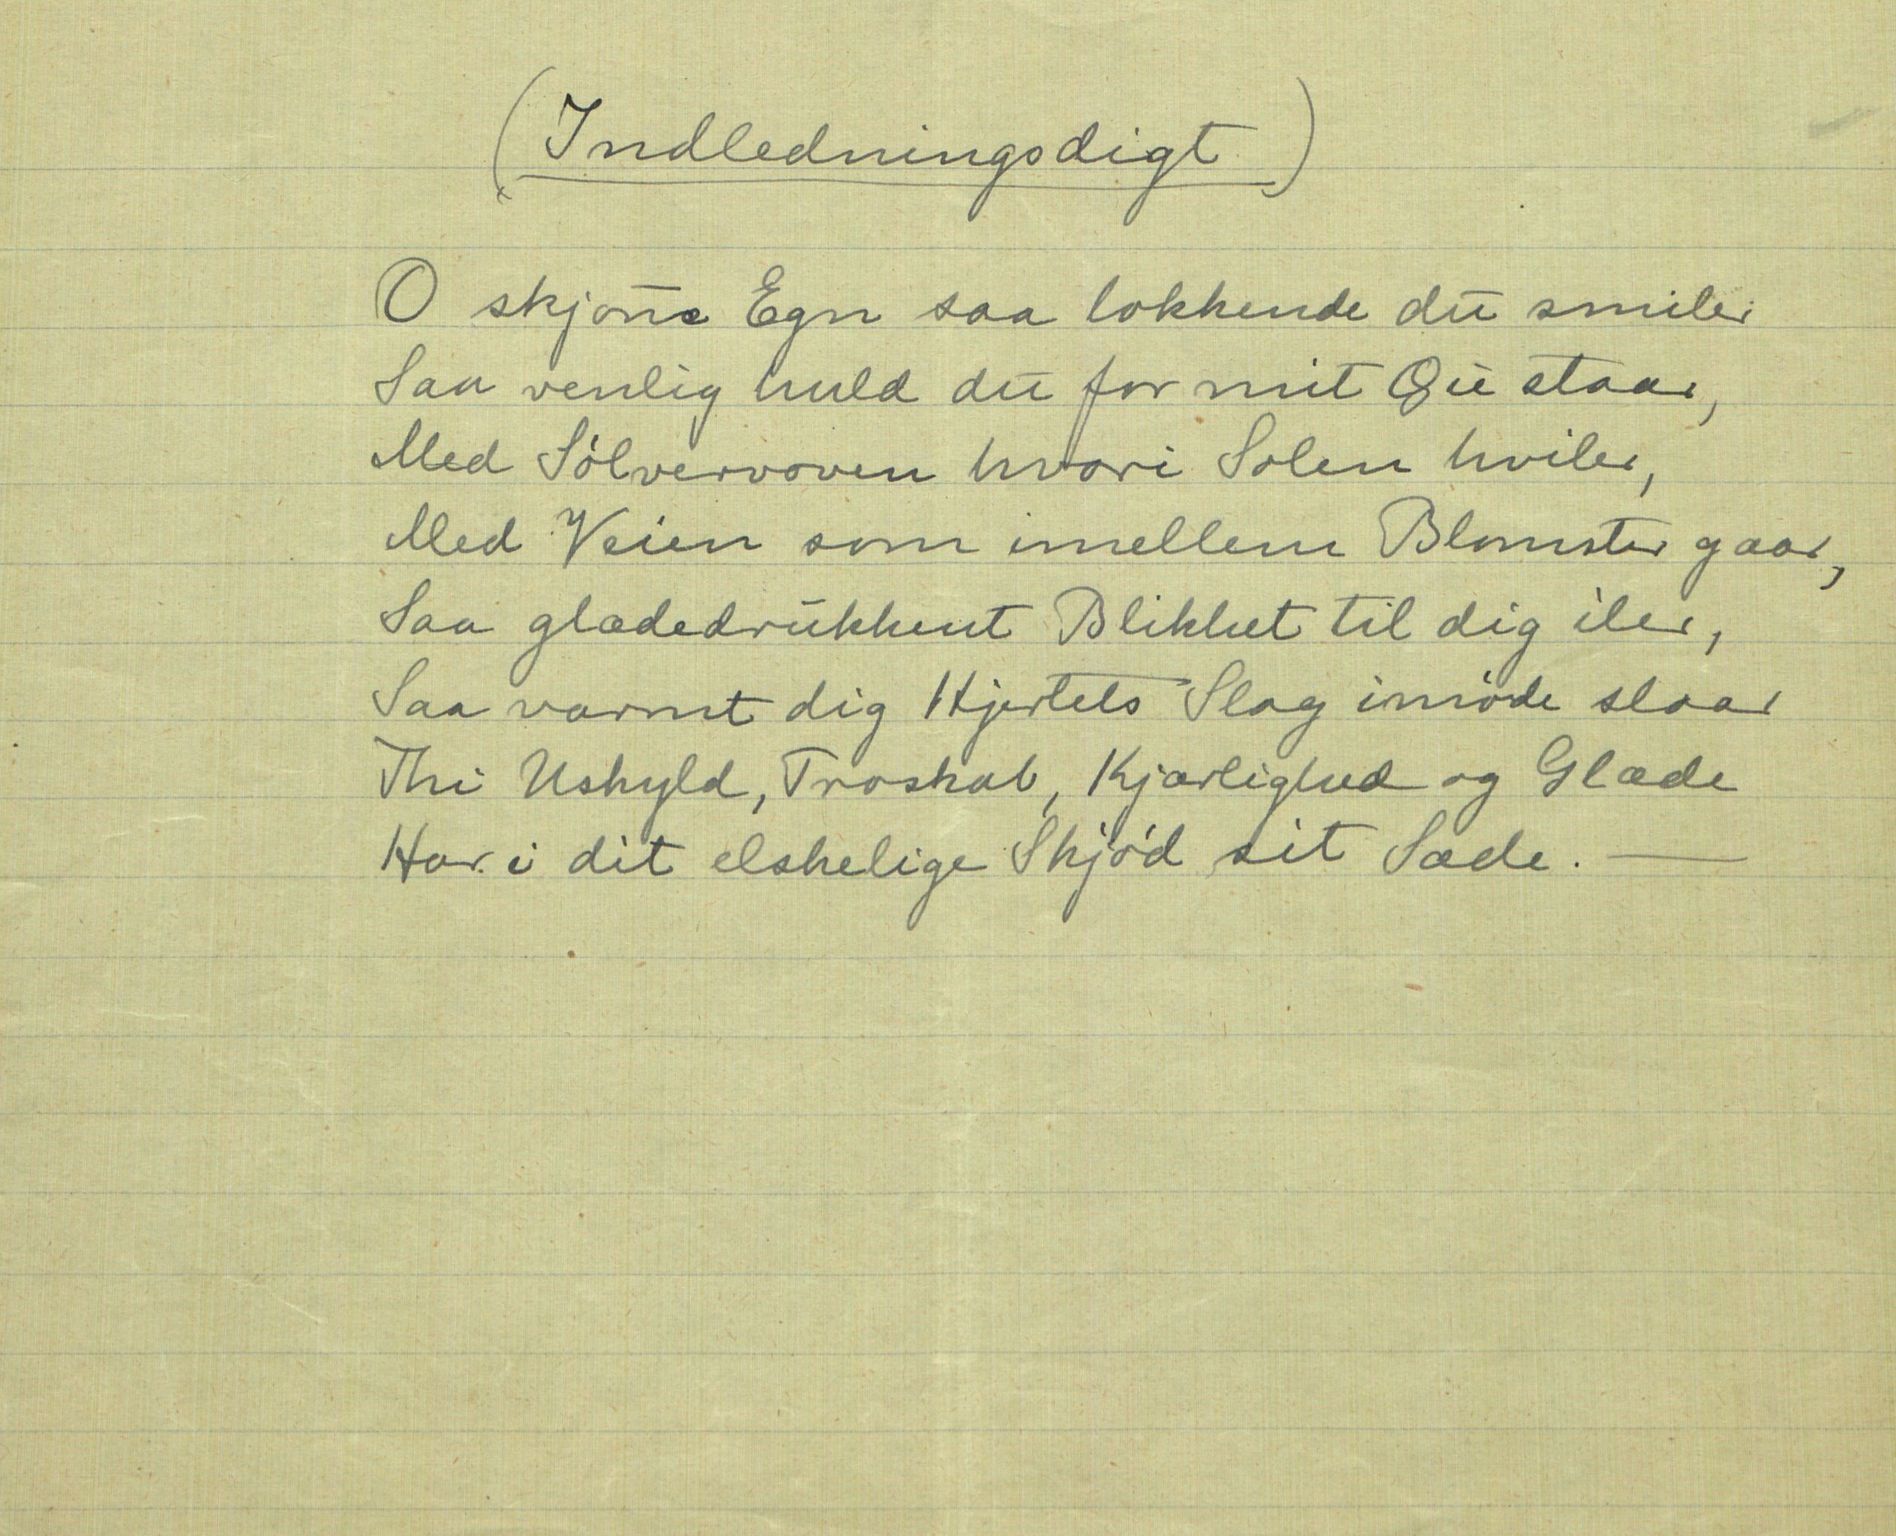 (Indledningsdigt)
O skjøne Egn saa lokkende du smiler
Saa venlig huld du for mit Øie staar,
Med Sølvervoven hvori Solen hviler,
Med Veien som imellem Blomster gaar,
Saa glædedrukkent Blikket til dig iler,
Saa varmt dig Hjertets Slag imøde slaar
Thi Uskyld, Troskab, Kjærlighed og Glæde
Har i dit elskelige Skjød sit Sæde. —